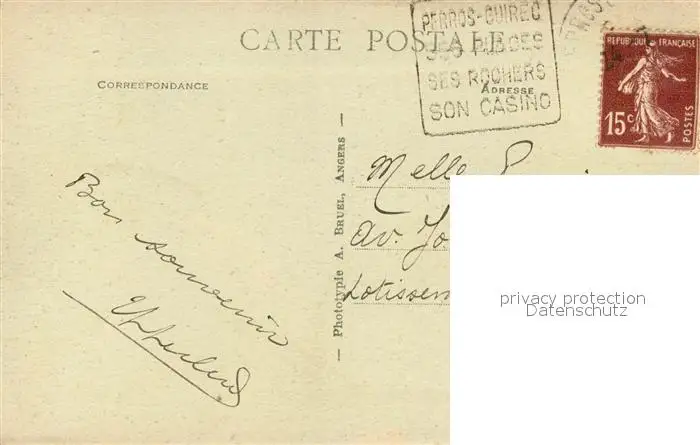 CARTE POSTALE
PERROS-GUIREC
SES PLAGES
SES ROCHERS
SON CASINO
PERROS
REPUBLIQUE FRANÇAISE
15c
POSTES
CORRESPONDANCE
ADRESSE
Bon souvenir
— Phototypie A. Bruel, Angers —
Melle
Av. Jo
Lotissem
privacy protection
Datenschutz